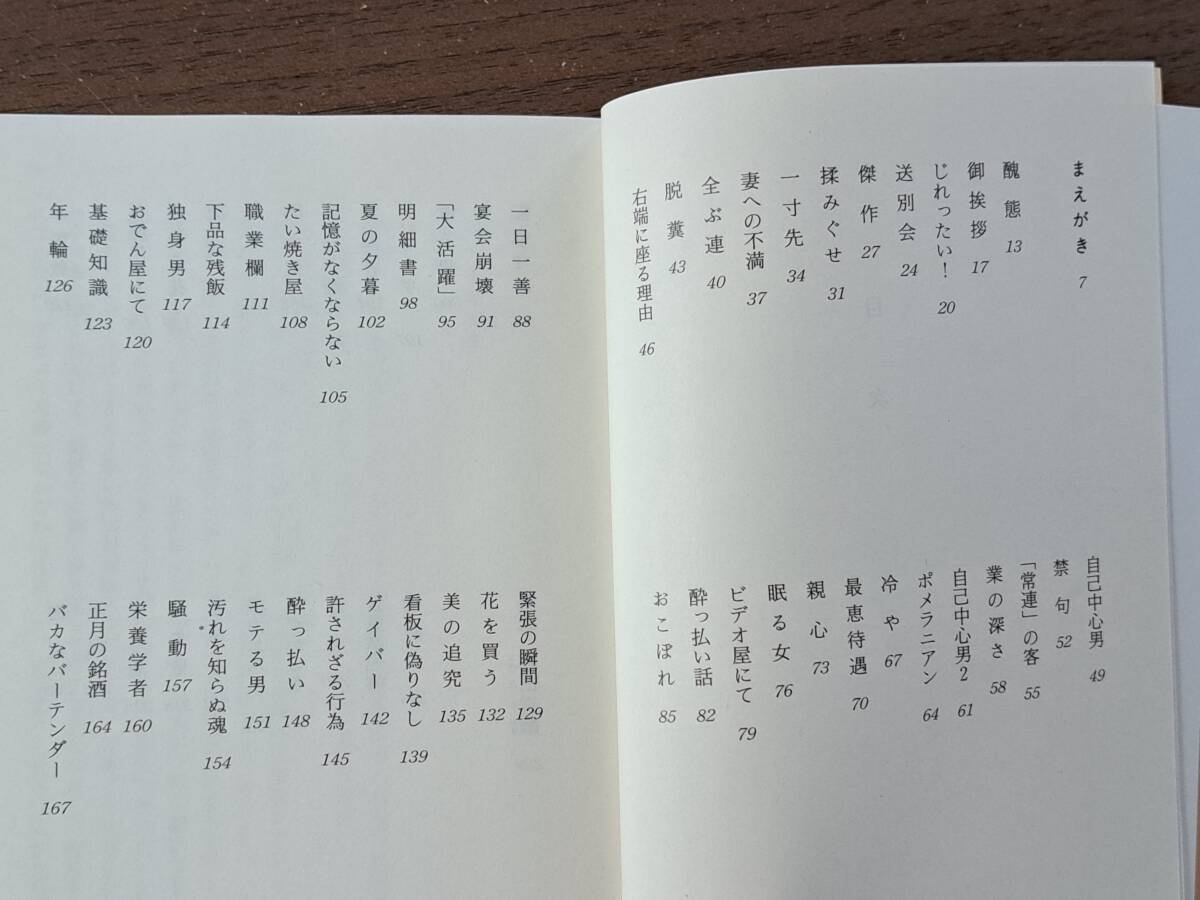 まえがき 7
醜態 13
御挨拶 17
じれったい! 20
送別会 24
傑作 27
揉みぐせ 31
一寸先 34
妻への不満 37
全ぶ連 40
脱糞 43
右端に座る理由 46
自己中心男 49
禁句 52
「常連」の客 55
業の深さ 58
自己中心男2 61
ポメラニアン 64
冷や 67
最恵待遇 70
親心 73
眠る女 76
ビデオ屋にて 79
酔っ払い話 82
おこぼれ 85
一日一善 88
宴会崩壊 91
「大活躍」 95
明細書 98
夏の夕暮 102
記憶がなくならない 105
たい焼き屋 108
職業欄 111
下品な残飯 114
独身男 117
おでん屋にて 120
基礎知識 123
年輪 126
緊張の瞬間 129
花を買う 132
美の追究 135
看板に偽りなし 139
ゲイバー 142
許されざる行為 145
酔っ払い 148
モテる男 151
汚れを知らぬ魂 154
騒動 157
栄養学者 160
正月の銘酒 164
バカなバーテンダー 167